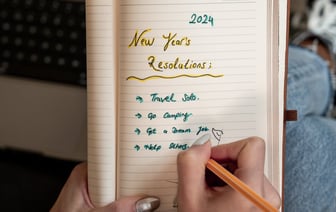 2024
New Year's
Resolutions:
→ Travel Solo.
→ Go Camping.
→ Get a Dream Job
→ Help